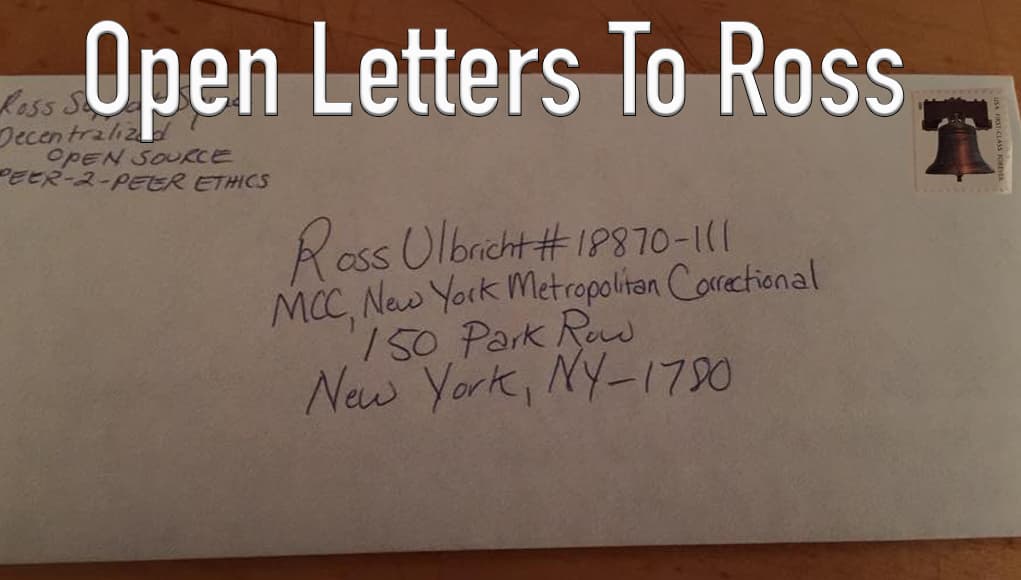 Open Letters To Ross
Ross
Decentralized
OPEN SOURCE
PEER-2-PEER ETHICS
USA FIRST-CLASS FOREVER
Ross Ulbricht # 18870-111
MCC, New York Metropolitan Correctional
150 Park Row
New York, NY-1780